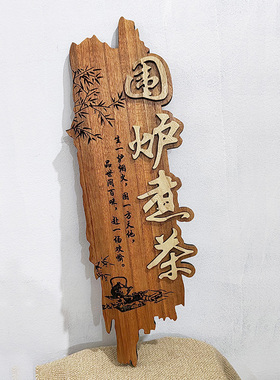 围炉煮茶
生一炉烟火，围一方天地，
品世间百味，赴一场欢愉。